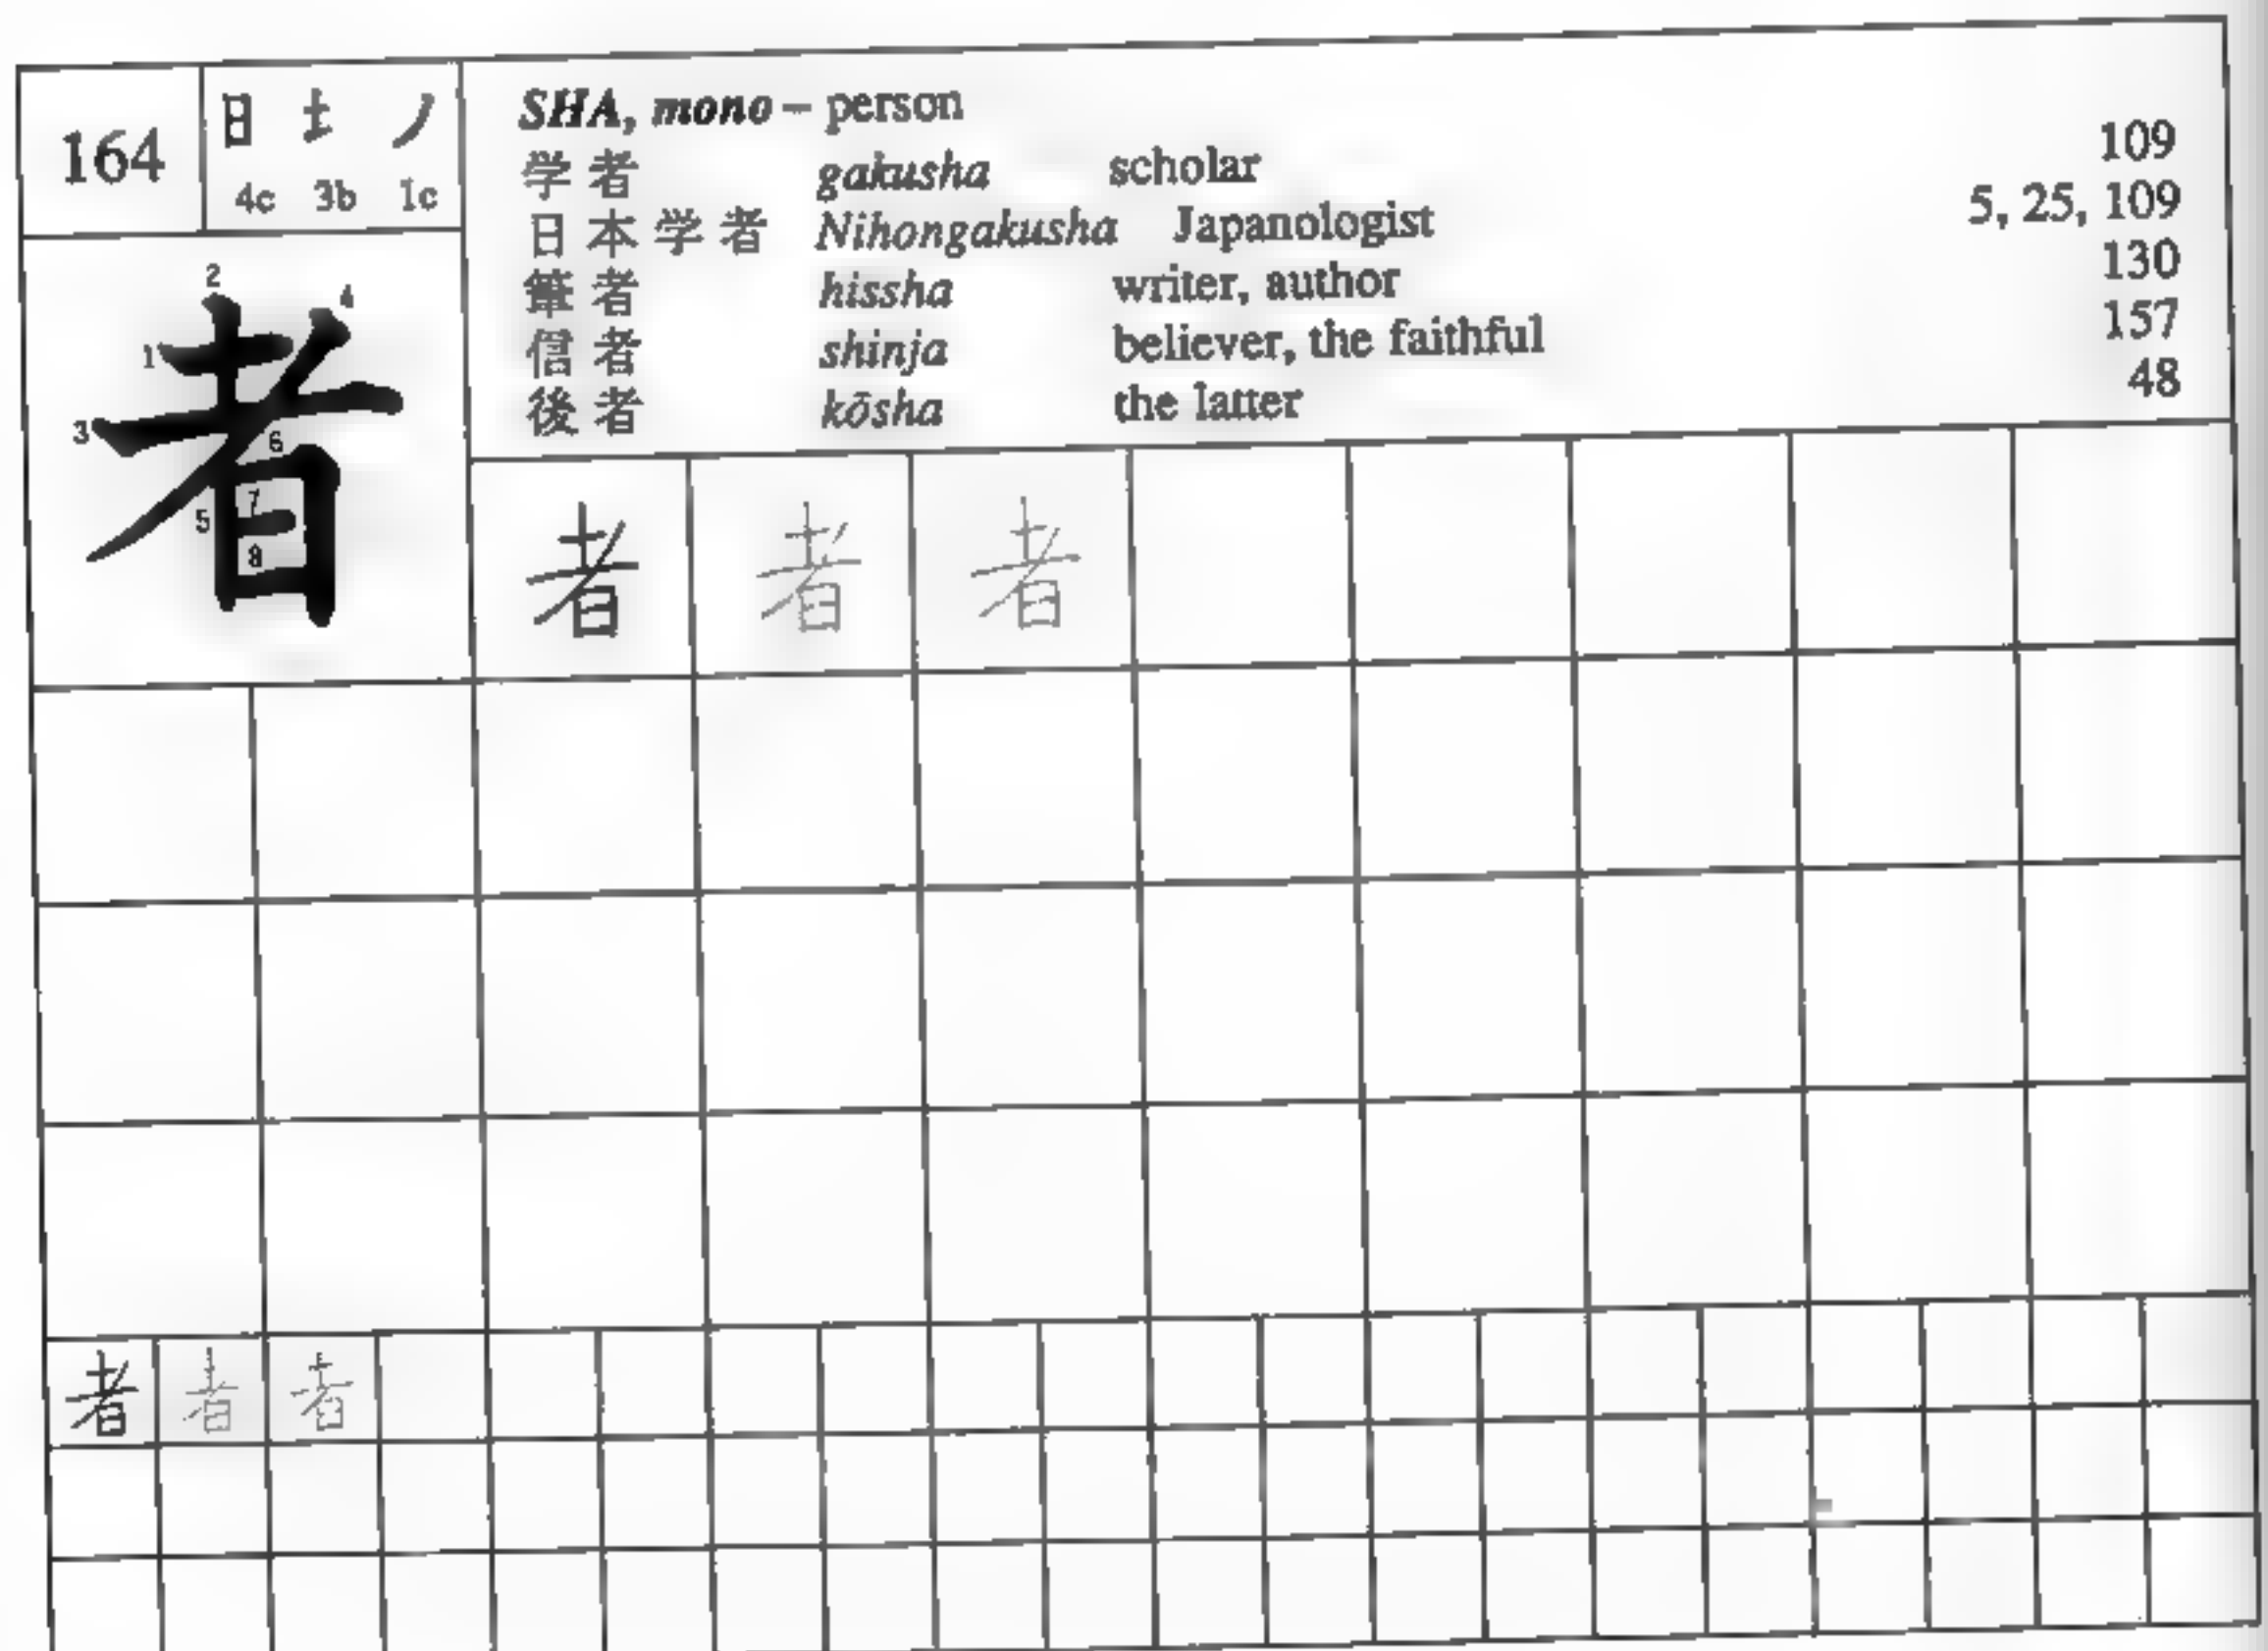 164
日 扌 ノ
4c 3b 1c
SHA, mono – person
学者 gakusha scholar 109
日本学者 Nihongakusha Japanologist 5, 25, 109
筆者 hissha writer, author 130
信者 shinja believer, the faithful 157
後者 kōsha the latter 48
者
1 2 3 4 5 6 7 8
者 者 者
者 者 者